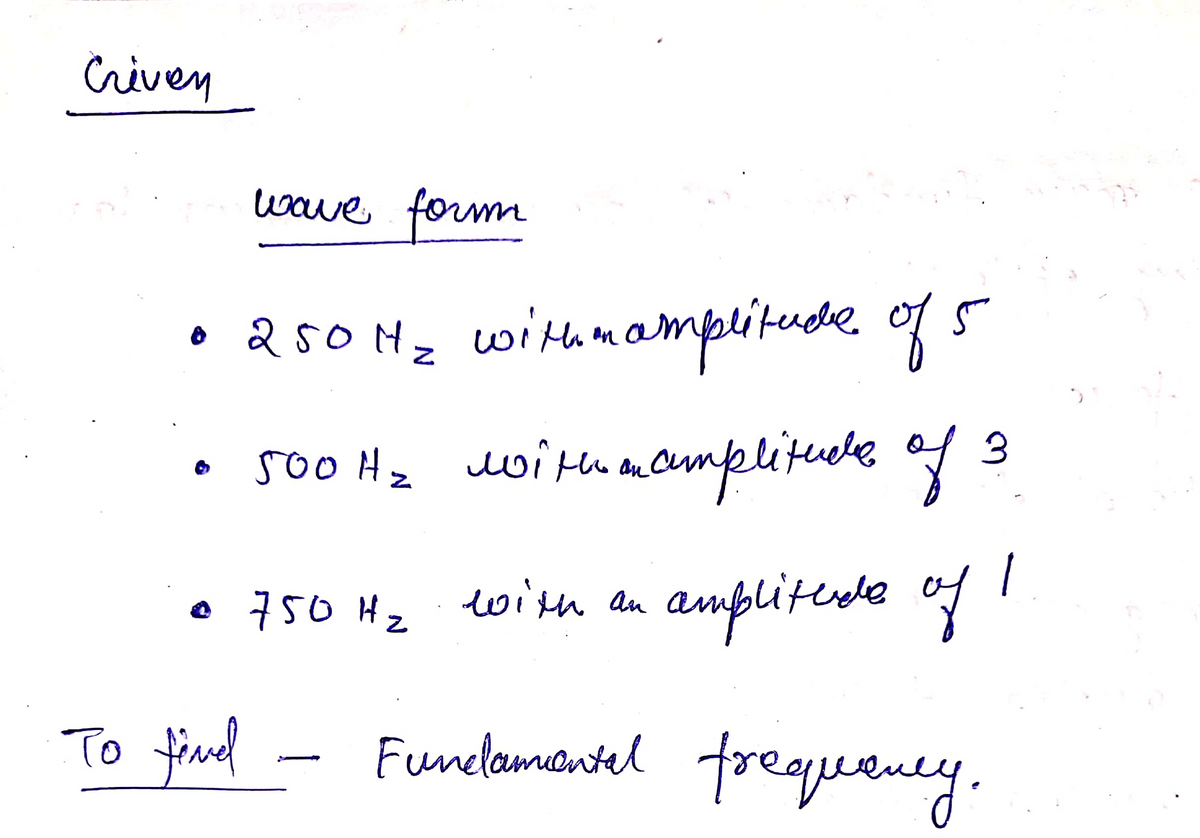 Given
wave form
• 250 Hz with an amplitude of 5
• 500 Hz with an amplitude of 3
• 750 Hz with an amplitude of 1
To find - Fundamental frequency.